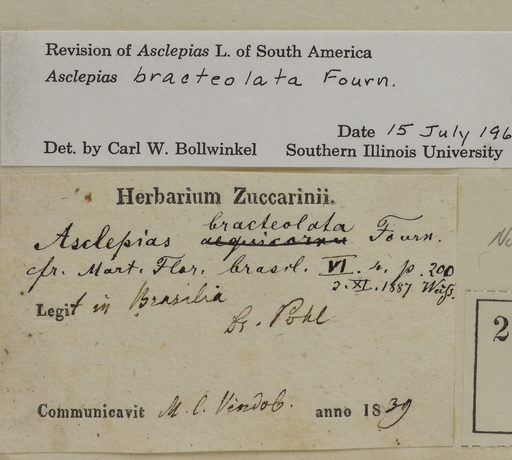 Revision of Asclepias L. of South America
Asclepias bracteolata Fourn.
Date 15 July 196
Det. by Carl W. Bollwinkel Southern Illinois University
Herbarium Zuccarinii.
bracteolata
Asclepias aequicornu Fourn.
cfr. Mart. Flor. brasil. VI. 4. p. 200
2. XI. 1887 Weiß.
Legit in Brasilia
Dr. Pohl
Communicavit M. C. Vindob. anno 1839
2